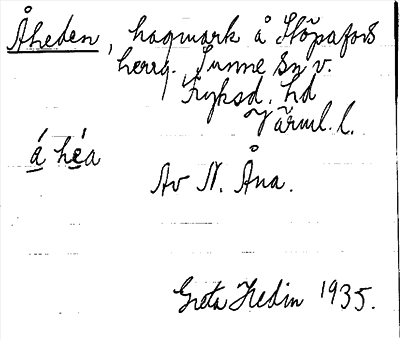 Åheden, hagmark å Stöpafors
herrg. Sunne sn v.
Fryksd. hd
Värml. l.
á héa
Av N. Åna.
Greta Hedin 1935.